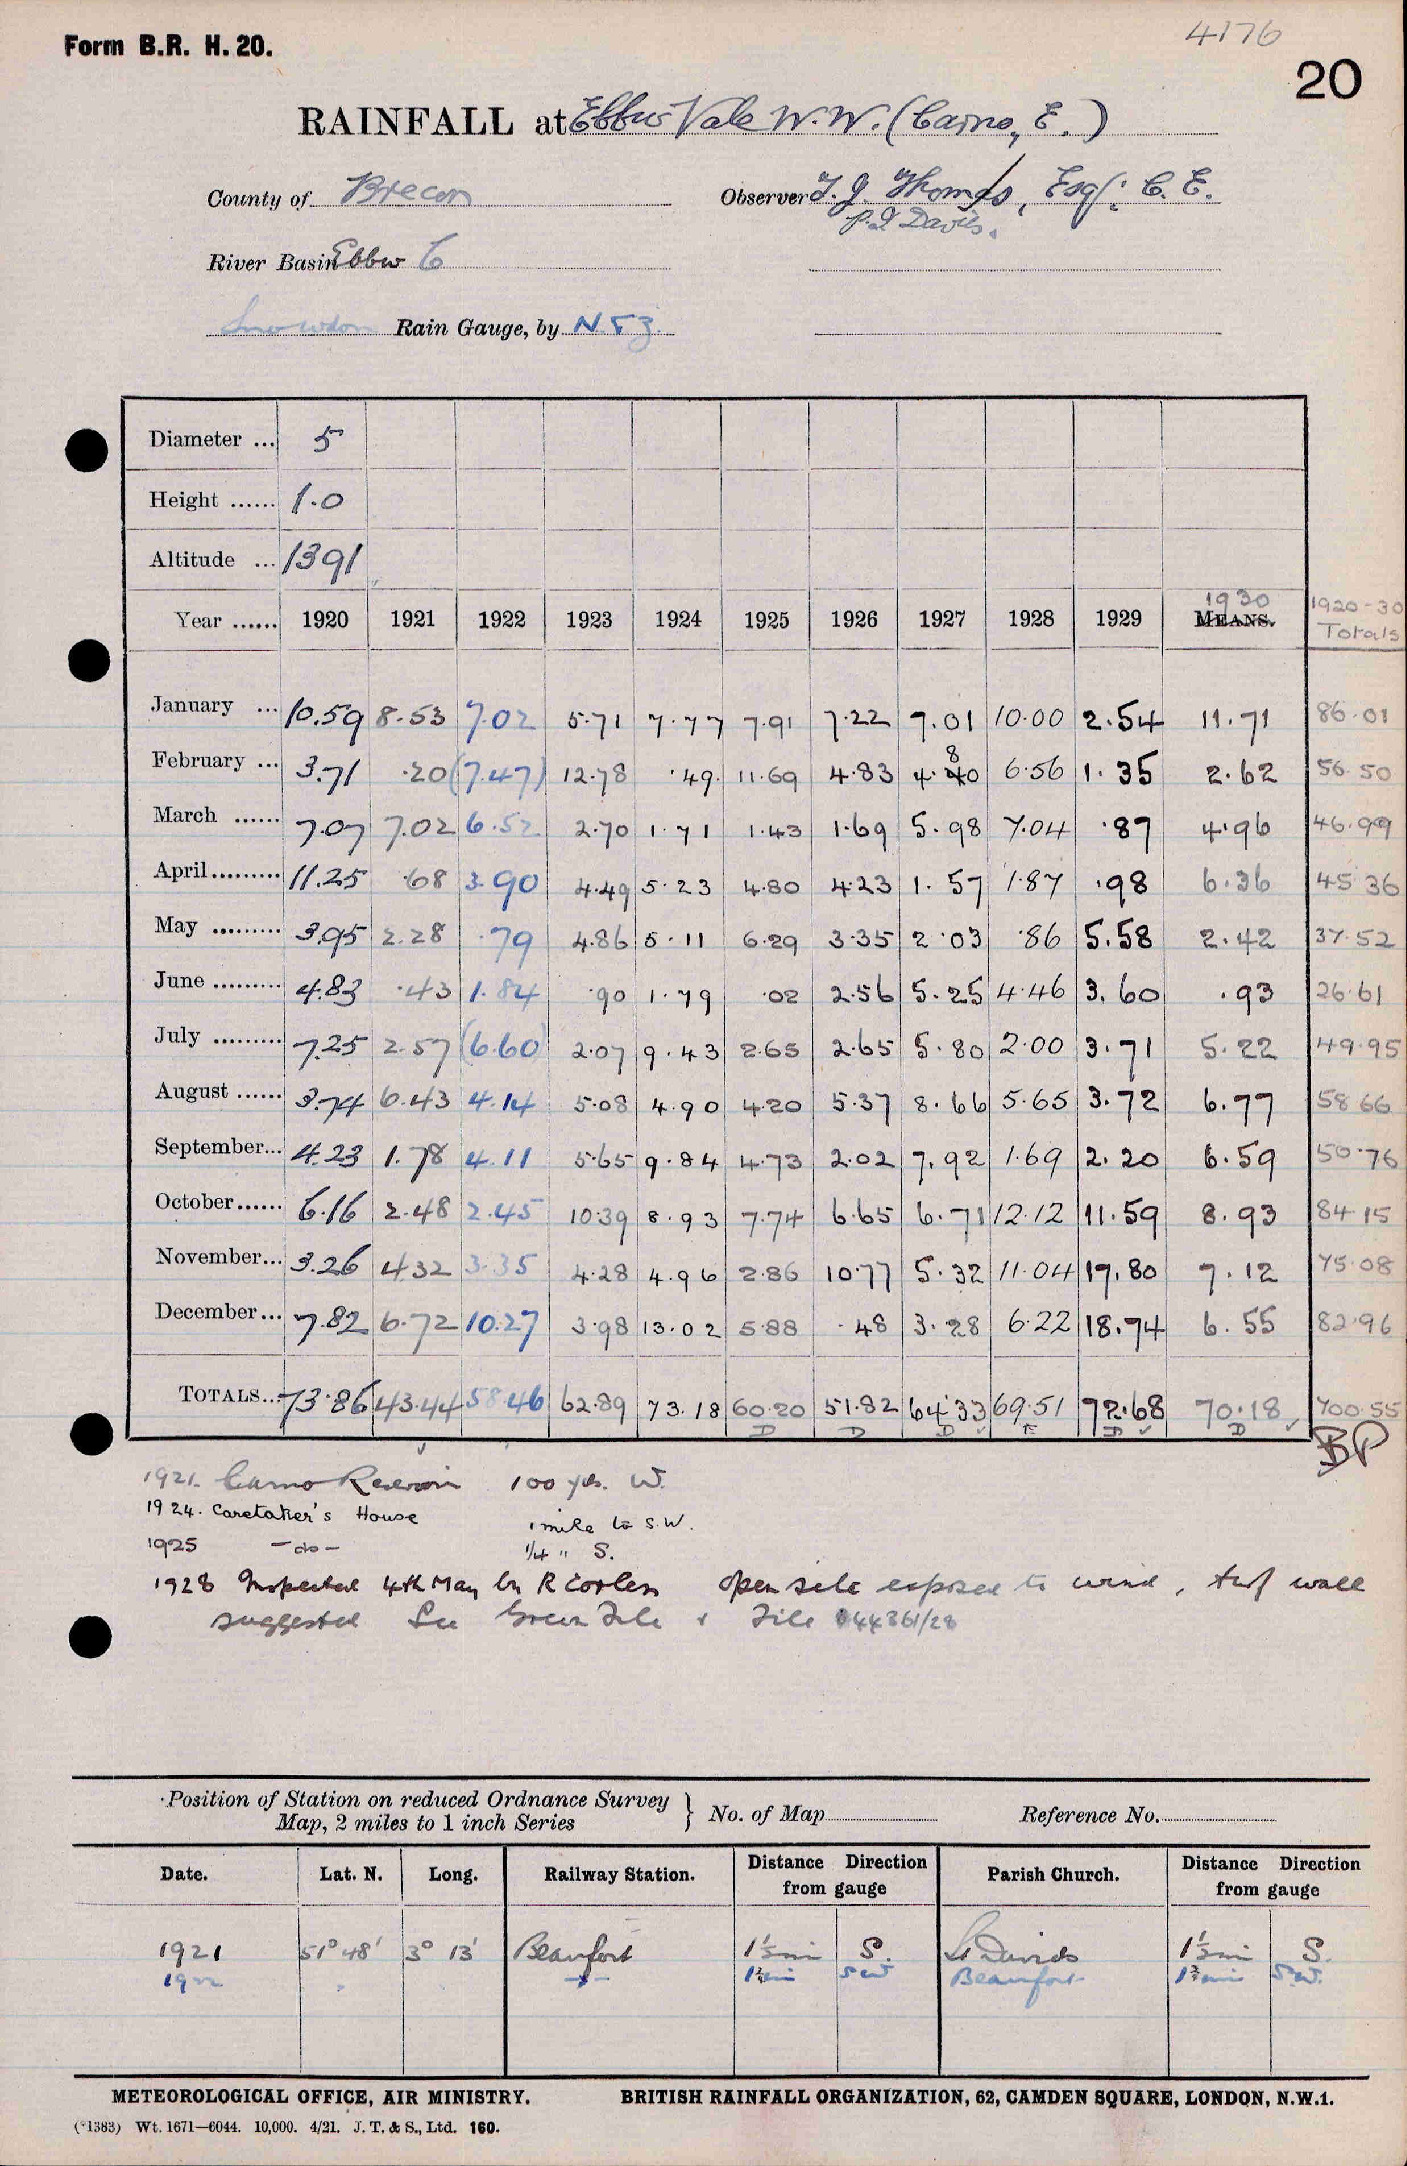 4176
Form B.R. H. 20.
20
RAINFALL at Ebbw Vale W.W. (Carno, E.)
County of Brecon Observer T. J. Thomas, Esq: C. E.
P.I Davis.
River Basin Ebbw C
Snowdon Rain Gauge, by N & Z.
Diameter ... 5
Height ...... 1.0
Altitude ... 1391
1930
Year ...... 1920 1921 1922 1923 1924 1925 1926 1927 1928 1929 MEANS. 1920-30 Totals
January ... 10.59 8.53 7.02 5.71 7.77 7.91 7.22 7.01 10.00 2.54 11.71 86.01
February ... 3.71 .20 (7.47) 12.78 .49 11.69 4.83 4.80 6.56 1.35 2.62 56.50
March ...... 7.07 7.02 6.52 2.70 1.71 1.43 1.69 5.98 7.04 .87 4.96 46.99
April ......... 11.25 .68 3.90 4.49 5.23 4.80 4.23 1.57 1.87 .98 6.36 45.36
May ......... 3.95 2.28 .79 4.86 5.11 6.29 3.35 2.03 .86 5.58 2.42 37.52
June ......... 4.83 .43 1.84 .90 1.79 .02 2.56 5.25 4.46 3.60 .93 26.61
July ......... 7.25 2.57 (6.60) 2.07 9.43 2.65 2.65 5.80 2.00 3.71 5.22 49.95
August ...... 3.74 6.43 4.14 5.08 4.90 4.20 5.37 8.66 5.65 3.72 6.77 58.66
September... 4.23 1.78 4.11 5.65 9.84 4.73 2.02 7.92 1.69 2.20 6.59 50.76
October...... 6.16 2.48 2.45 10.39 8.93 7.74 6.65 6.71 12.12 11.59 8.93 84.15
November... 3.26 4.32 3.35 4.28 4.96 2.86 10.77 5.32 11.04 17.80 7.12 75.08
December... 7.82 6.72 10.27 3.98 13.02 5.88 .48 3.28 6.22 18.74 6.55 82.96
TOTALS... 73.86 43.44 58.46 62.89 73.18 60.20 51.82 64.33 69.51 72.68 70.18 700.55
D D D E D D BP
1921. Carno Reservoir 100 yds. W.
1924. Caretaker's House 1 mile to S.W.
1925 -do- 1/4 " S.
1928 Inspected 4th May by R Corless open site exposed to wind, turf wall
suggested See Green File & File 44361/28
Position of Station on reduced Ordnance Survey
Map, 2 miles to 1 inch Series } No. of Map Reference No.
Date. Lat. N. Long. Railway Station. Distance Direction from gauge Parish Church. Distance Direction from gauge
1921 51° 48' 3° 13' Beaufort S. St Davids S.
1922 " " S.W. Beaufort S.W.
METEOROLOGICAL OFFICE, AIR MINISTRY. BRITISH RAINFALL ORGANIZATION, 62, CAMDEN SQUARE, LONDON, N.W.1.
(*1383) Wt. 1671—6044. 10,000. 4/21. J. T. & S., Ltd. 160.